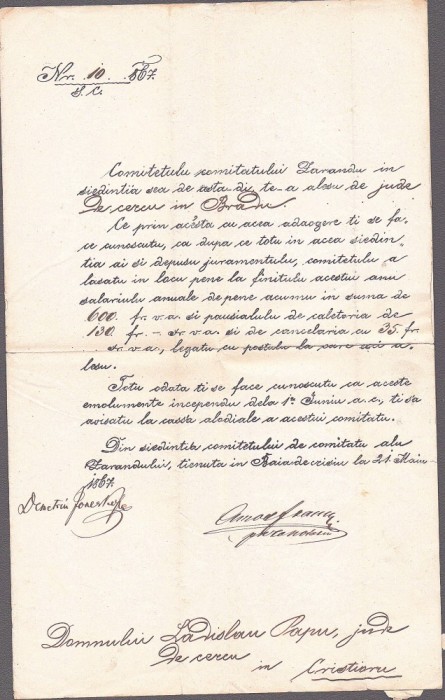 Nr. 10 1867.
S. C.
Comitetulu comitatului Zarandu in
siedintia sea de asta-di te-a alesu de jude
de cercu in Bradu.
Ce prin acésta cu acea adaogere ti se fa-
ce cunoscutu, ca dupa ce totu in acea siedin-
tia ai si depusu juramentulu, comitetulu a
lasatu in locu pene la finitulu acestui anu
salariulu anuale de pene acumu in suma de
600 fr. v. a. si pausialulu de caletoria de
130 fr. v. a. si de cancelaria cu 35 fr.
v. a., legatu cu postulu la care ai a-
lesu.
Totu odata ti se face cunoscutu ca aceste
emolumente incependu dela 1a Juniu a. c., ti sa
avisatu la cassa alodiale a acestui comitatu.
Din siedintia comitetului de comitatu alu
Zarandului, tienuta in Baia de crisiu la 21 Maiu
1867.
Domnului Ladislau Papu, jude
de cercu
in Cristioru